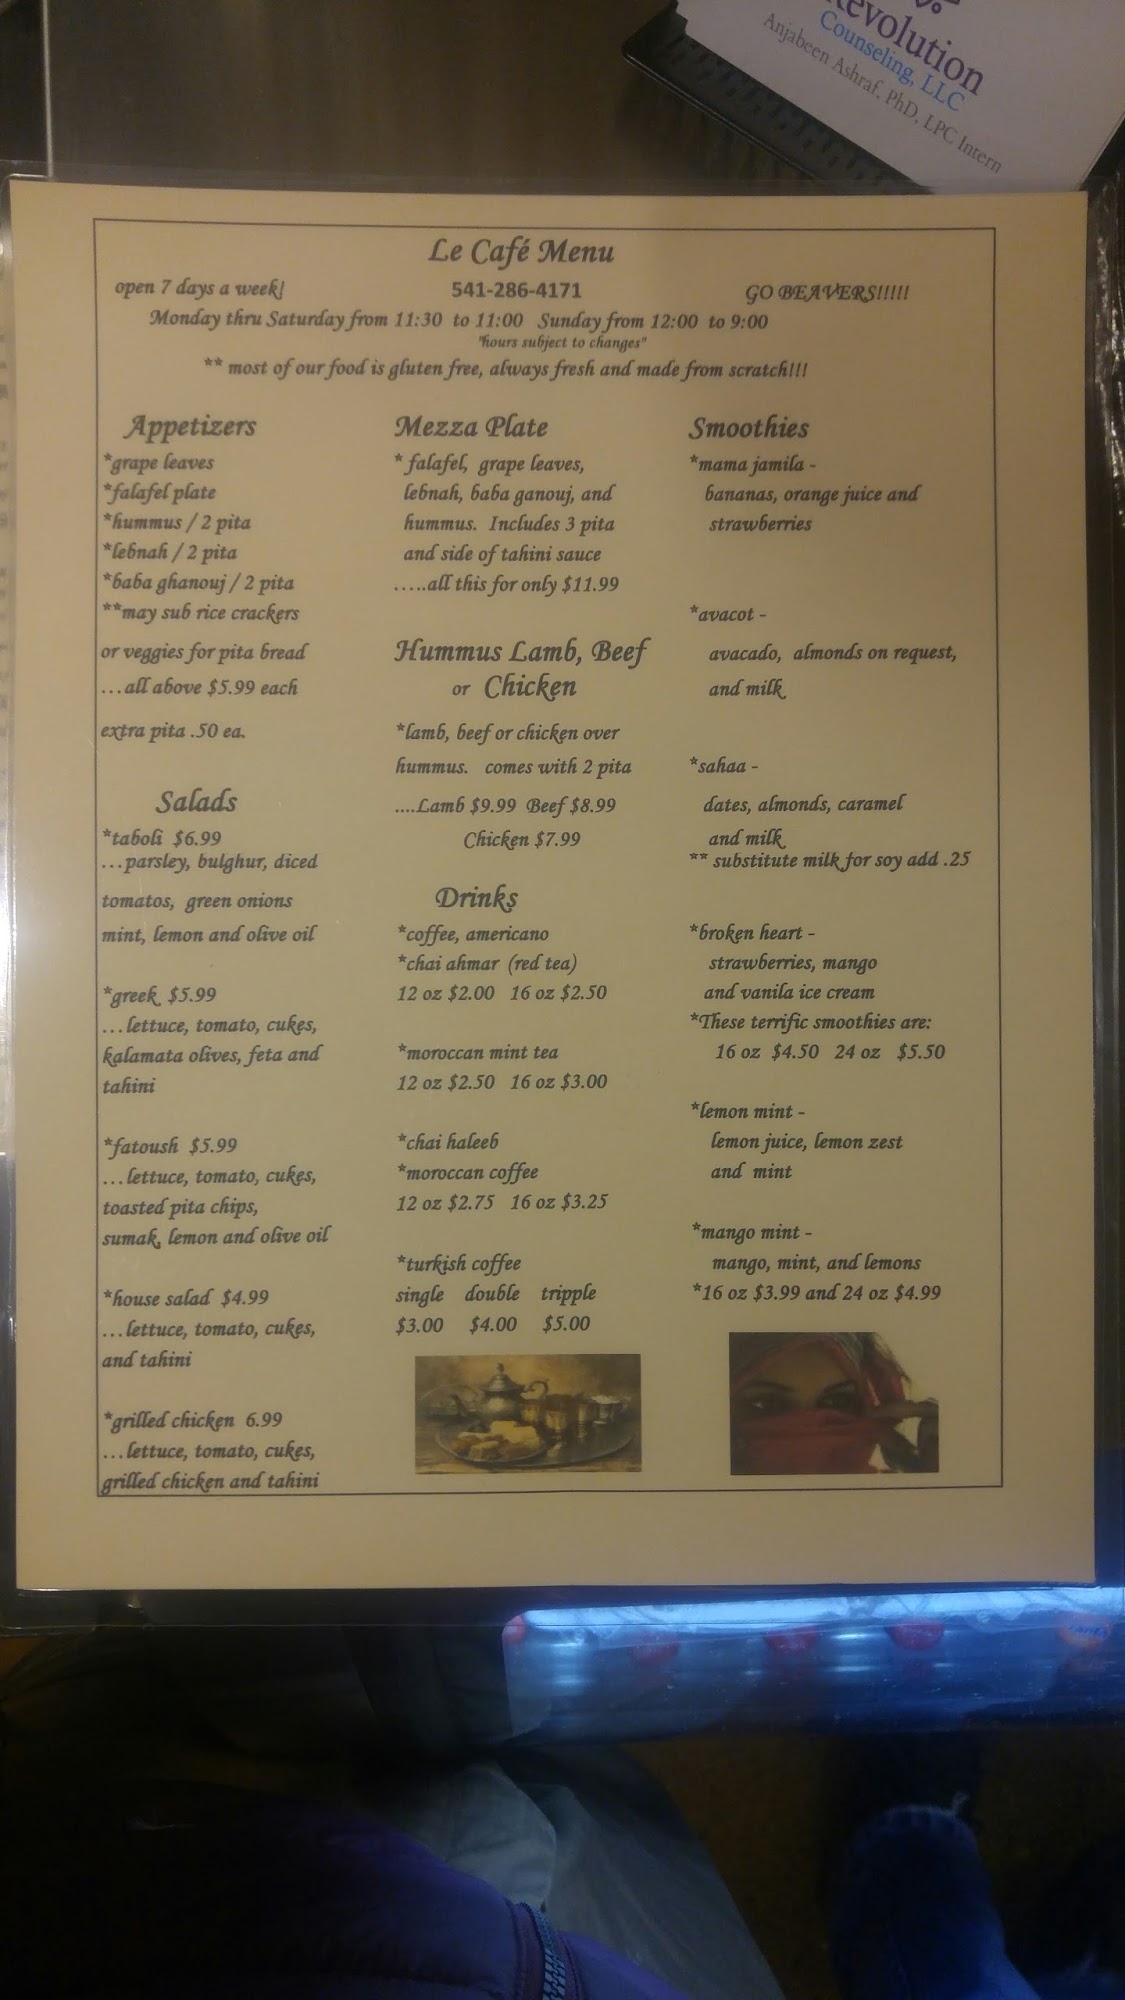 Revolution
Counseling, LLC
Anjabeen Ashraf, PhD, LPC Intern
Le Café Menu
open 7 days a week! 541-286-4171 GO BEAVERS!!!!!
Monday thru Saturday from 11:30 to 11:00 Sunday from 12:00 to 9:00
"hours subject to changes"
** most of our food is gluten free, always fresh and made from scratch!!!
Appetizers
*grape leaves
*falafel plate
*hummus / 2 pita
*lebnah / 2 pita
*baba ghanouj / 2 pita
**may sub rice crackers
or veggies for pita bread
...all above $5.99 each
extra pita .50 ea.
Salads
*taboli $6.99
...parsley, bulghur, diced
tomatos, green onions
mint, lemon and olive oil
*greek $5.99
...lettuce, tomato, cukes,
kalamata olives, feta and
tahini
*fatoush $5.99
...lettuce, tomato, cukes,
toasted pita chips,
sumak, lemon and olive oil
*house salad $4.99
...lettuce, tomato, cukes,
and tahini
*grilled chicken 6.99
...lettuce, tomato, cukes,
grilled chicken and tahini
Mezza Plate
* falafel, grape leaves,
lebnah, baba ganouj, and
hummus. Includes 3 pita
and side of tahini sauce
.....all this for only $11.99
Hummus Lamb, Beef
or Chicken
*lamb, beef or chicken over
hummus. comes with 2 pita
....Lamb $9.99 Beef $8.99
Chicken $7.99
Drinks
*coffee, americano
*chai ahmar (red tea)
12 oz $2.00 16 oz $2.50
*moroccan mint tea
12 oz $2.50 16 oz $3.00
*chai haleeb
*moroccan coffee
12 oz $2.75 16 oz $3.25
*turkish coffee
single double tripple
$3.00 $4.00 $5.00
Smoothies
*mama jamila -
bananas, orange juice and
strawberries
*avacot -
avacado, almonds on request,
and milk
*sahaa -
dates, almonds, caramel
and milk
** substitute milk for soy add .25
*broken heart -
strawberries, mango
and vanila ice cream
*These terrific smoothies are:
16 oz $4.50 24 oz $5.50
*lemon mint -
lemon juice, lemon zest
and mint
*mango mint -
mango, mint, and lemons
*16 oz $3.99 and 24 oz $4.99